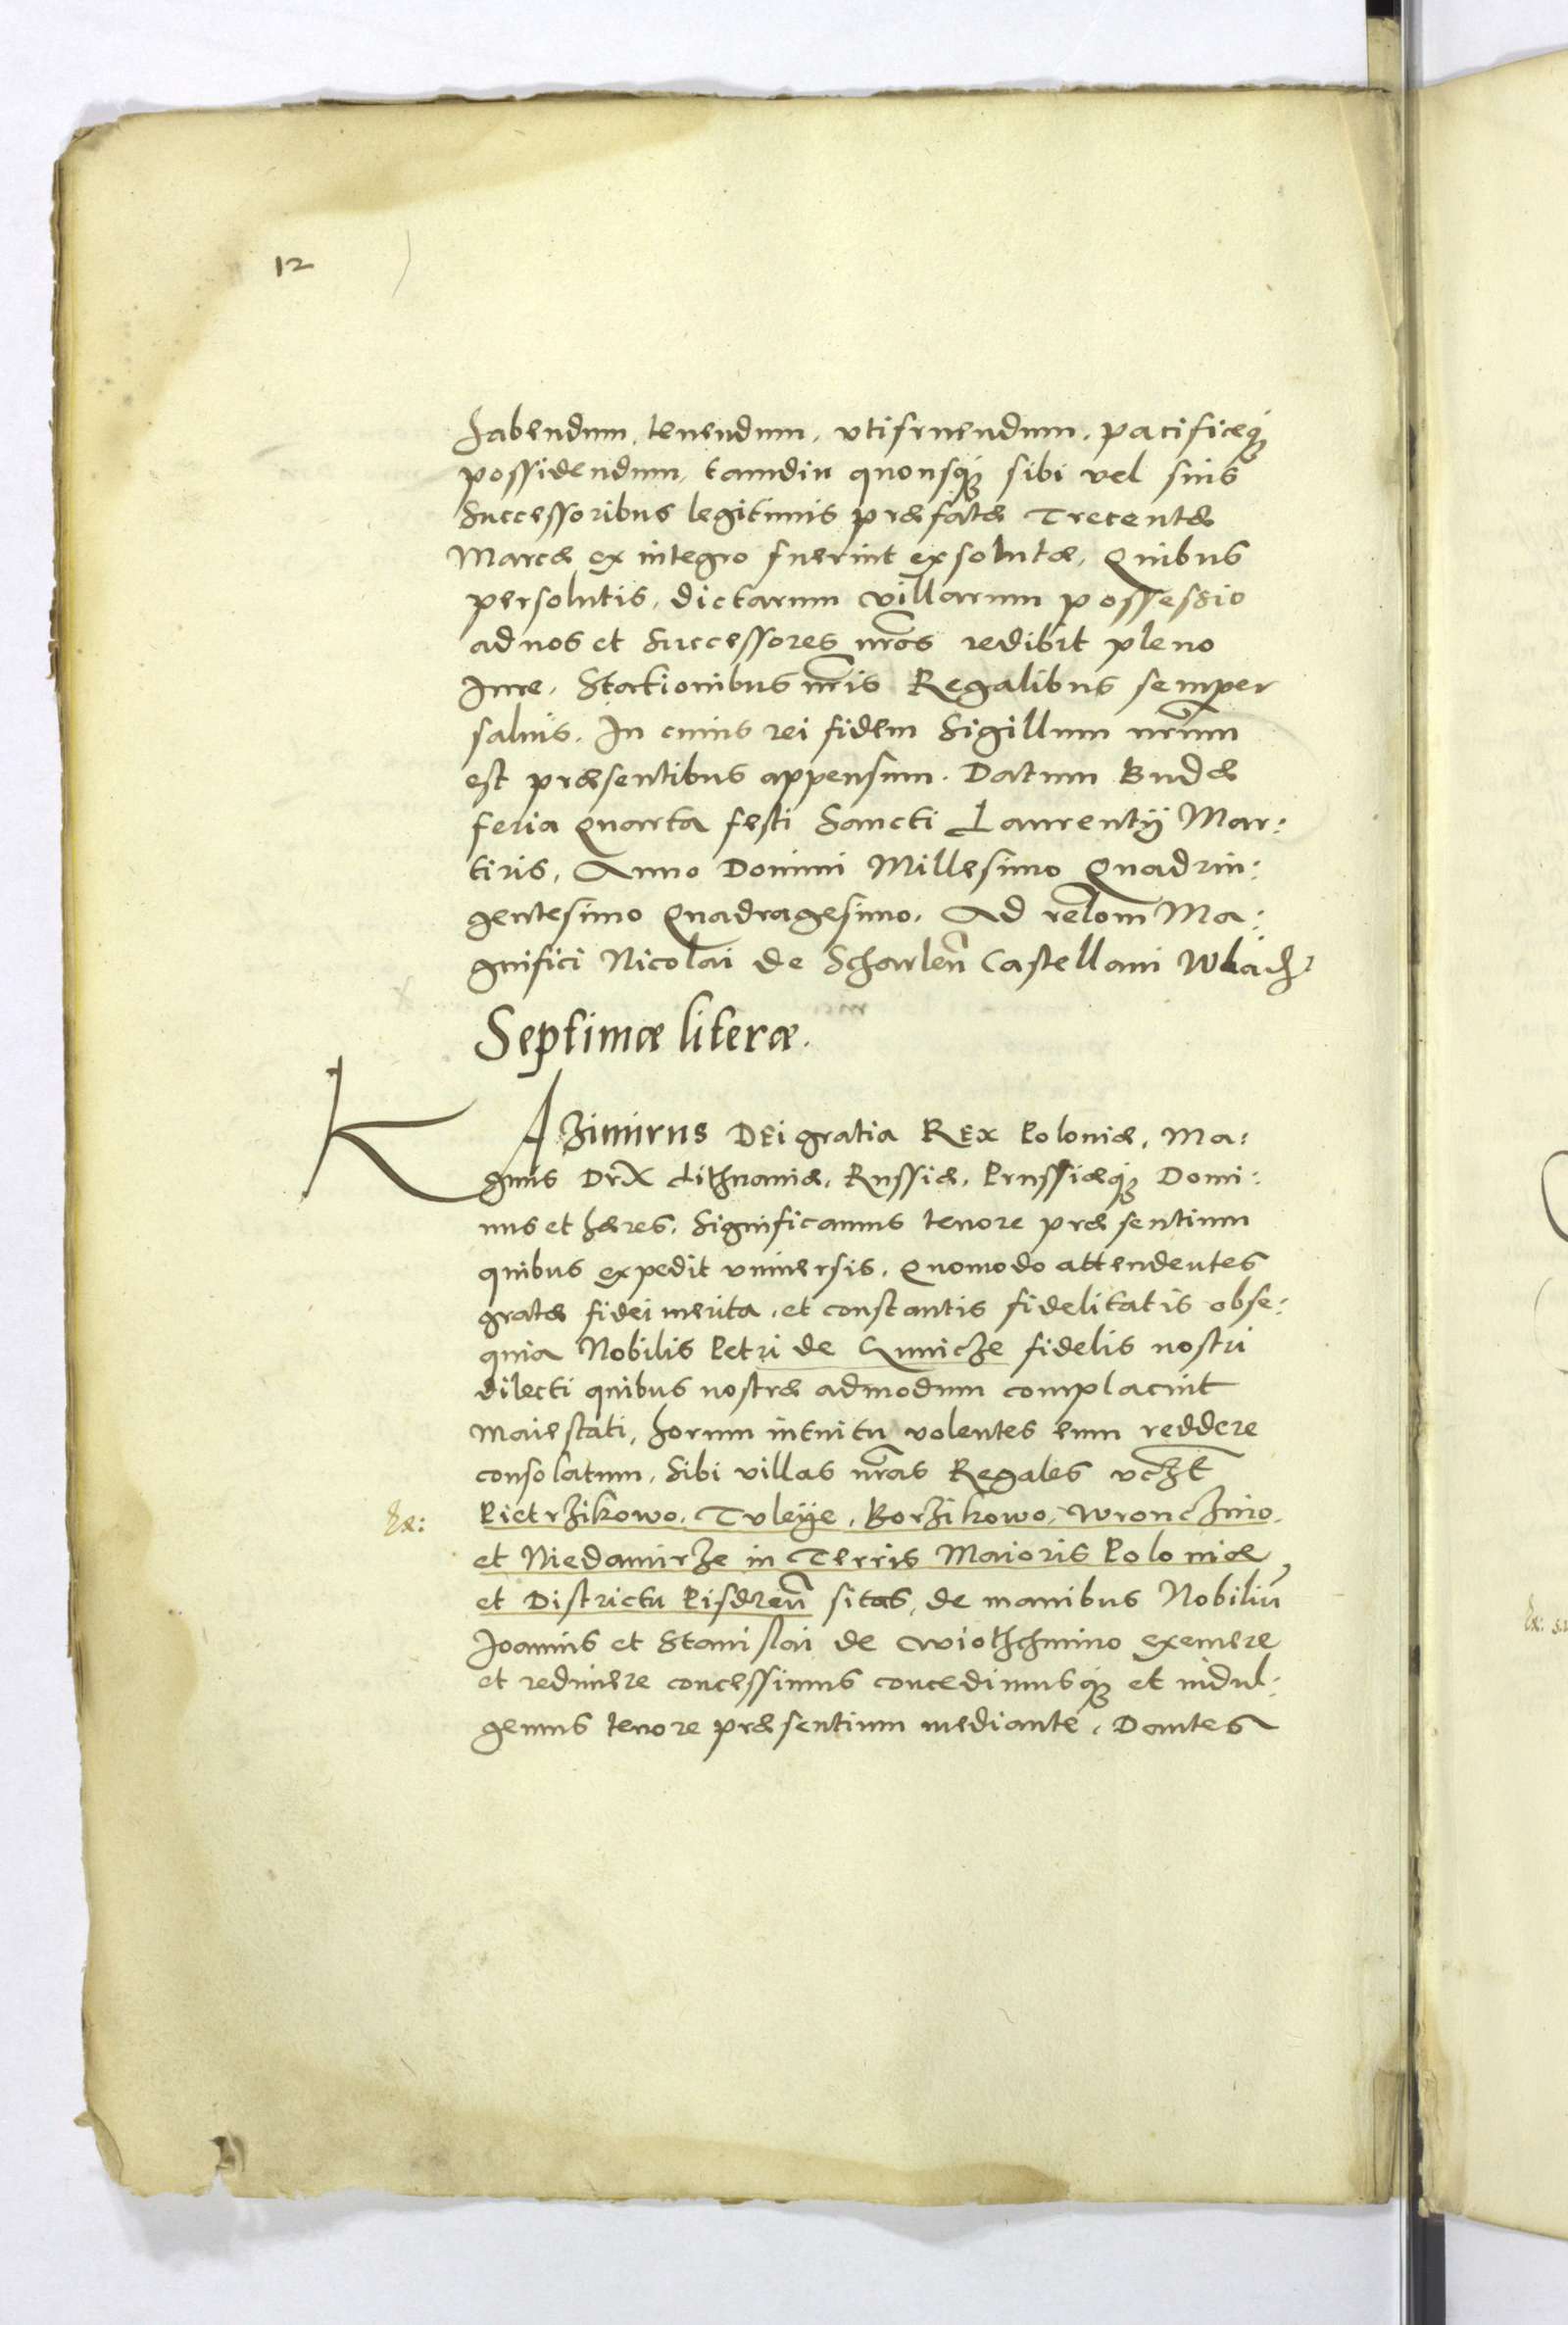 12
habendum, tenendum, vtifruendum, pacificeq;
possidendum, tamdiu quousq; sibi vel suis
Successoribus legitimis præfatæ Trecentæ
Marcæ ex integro fuerint exsolutæ, Quibus
persolutis, dictarum villarum possessio
ad nos et Successores nr̃os redibit pleno
Iure, Stationibus nr̃is Regalibus semper
saluis. In cuius rei fidem Sigillum nr̃um
est præsentibus appensum. Datum Budæ
feria Quarta festi Sancti Laurentÿ Mar:
tiris, Anno Domini Millesimo Quadrin:
gentesimo Quadragesimo. Ad rel̃om Ma:
gnifici Nicolai de Scharleñ Castellani Wladz
Septimæ literæ.
KAzimirus DEi gratia REx Poloniæ, Ma:
gnus Dux Lithuaniæ, Russiæ, Prussiæq; Domi:
nus et hæres. Significamus tenore præsentium
quibus expedit vniuersis. Quomodo attendentes
gratæ fidei merita, et constantis fidelitatis obse:
quia Nobilis Petri de Gunicze fidelis nostri
dilecti quibus nostræ admodum complacuit
Maiestati, horum intuitu volentes eum reddere
consolatum, Sibi villas nr̃as Regales vcz̃t
Pietrzikowo, Tuleÿe, Borzikowo, Wronczino,
et Niedamirze in Terris Maioris Poloniæ
et Districtu Pisdreñ sitas, de manibus Nobiliũ
Joannis et Stanislai de Wiothchnino exemere
et redimere concessimus concedimusq; et indul:
gemus tenore præsentium mediante. Dantes